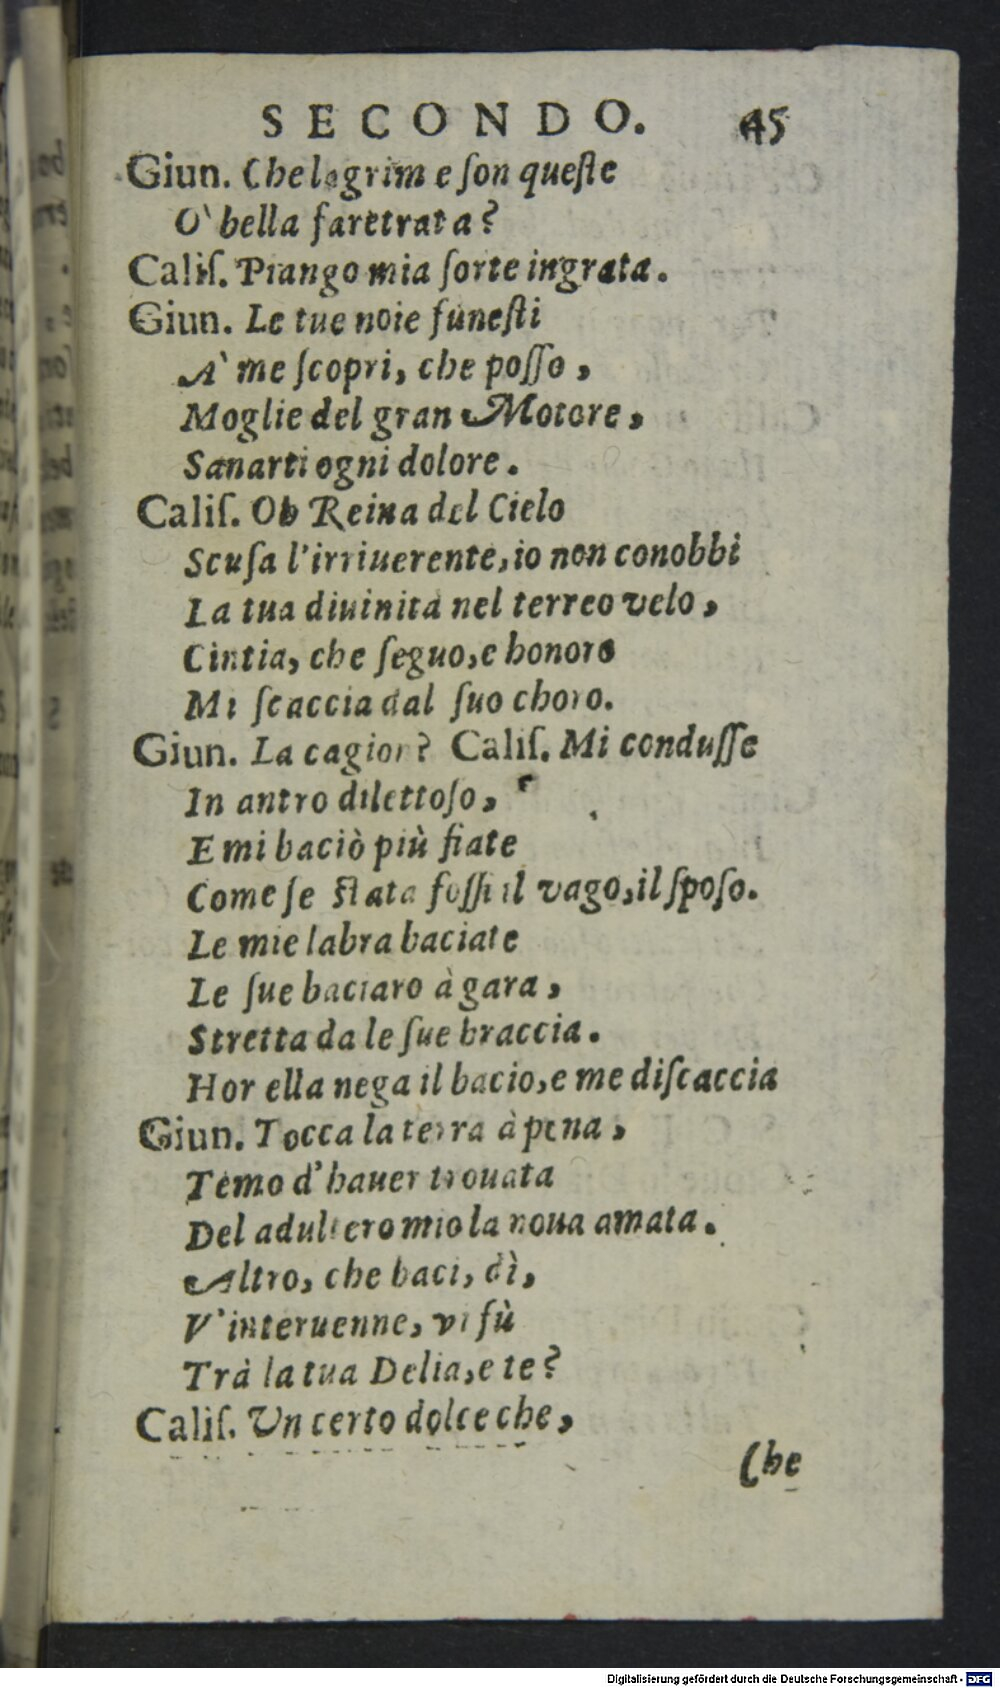 SECONDO. 45
Giun. Che lagrime son queſte
O' bella faretrata?
Caliſ. Piango mia ſorte ingrata.
Giun. Le tue noie funeſti
A' me ſcopri, che poſſo,
Moglie del gran Motore,
Sanarti ogni dolore.
Caliſ. Oh Reina del Cielo
Scuſa l'irriuerente, io non conobbi
La tua diuinità nel terreo velo,
Cintia, che ſeguo, e honoro
Mi ſcaccia dal ſuo choro.
Giun. La cagion? Caliſ. Mi conduſſe
In antro dilettoſo,
E mi baciò più fiate
Come ſe ſtata foſſi il vago, il ſpoſo.
Le mie labra baciate
Le ſue baciaro à gara,
Stretta da le ſue braccia.
Hor ella nega il bacio, e me diſcaccia
Giun. Tocca la terra à pena,
Temo d'hauer trouata
Del adultero mio la noua amata.
Altro, che baci, dì,
V'interuenne, vi fù
Trà la tua Delia, e te?
Caliſ. Un certo dolce che,
Che
Digitalisierung gefördert durch die Deutsche Forschungsgemeinschaft - DFG